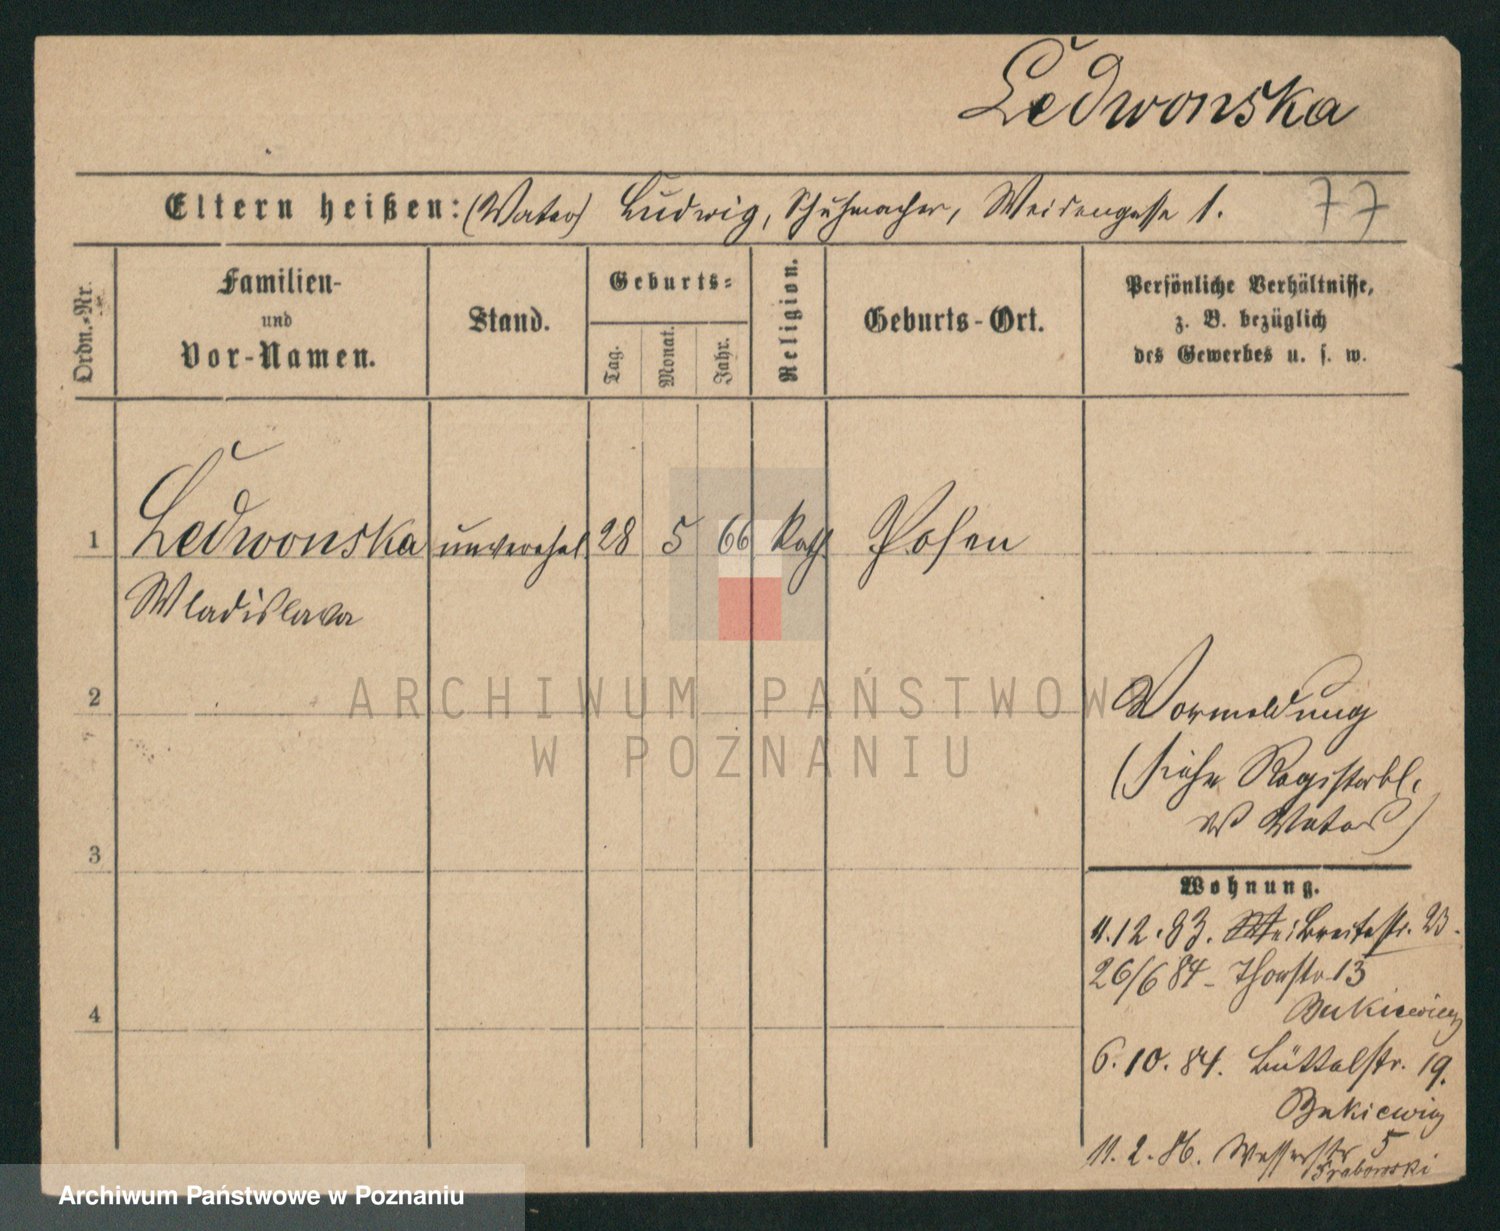 Ledwonska
Eltern heißen: (Vater) Ludwig, Schuhmacher, Weidengasse 1. 77
Ordn.-Nr.
Familien-
und
Vor-Namen.
Stand.
Geburts-
Tag.
Monat.
Jahr.
Religion.
Geburts-Ort.
Persönliche Verhältnisse,
z. B. bezüglich
des Gewerbes u. s. w.
1 Ledwonska unverehel. 28 5 66 Kath Posen
Wladislava
2
ARCHIWUM PAŃSTWOWE
W POZNANIU
Vormeldung
(siehe Registerbl.
des Vaters)
3
Wohnung.
11.12.83. Breitestr. 23.
26/6 84 - Thorstr 13
Bukiewicz
4
6.10.84. Büttelstr. 19.
Bukiewicz
11.2.86. Wasserstr 5
Grabowski
Archiwum Państwowe w Poznaniu